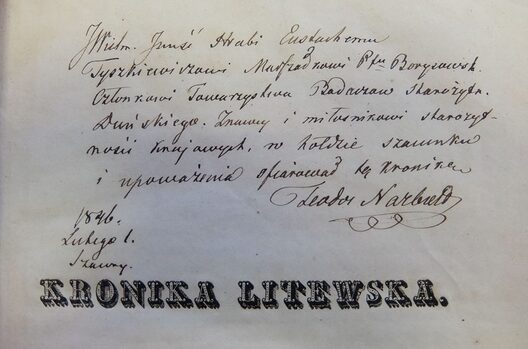 JWielm. Jmść Hrabi Eustachemu
Tyszkiewiczowi Marszałkowi Ptu Borysowsk.
Członkowi Towarzystwa Badaczów Starożytn.
Duńskiego. Znawcy i miłośnikowi starożyt-
ności krajowych, w hołdzie szacunku
i upoważenia ofiarował tę kronikę
Teodor Narbutt
1846.
Lutego 1.
Szawry.
KRONIKA LITEWSKA.